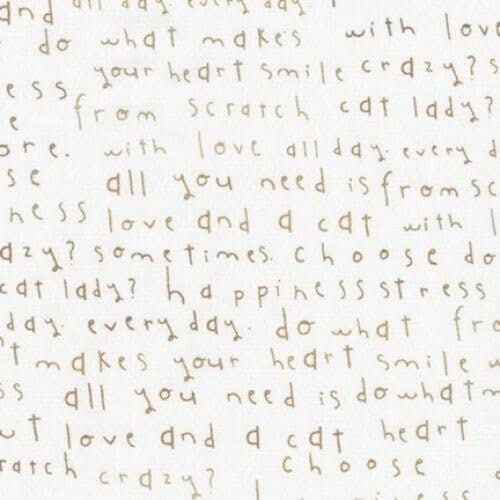 and all day. every day.
do what makes with love
your heart smile crazy? s
ess
e from scratch cat lady?
ore. with love all day. every d
se all you need is from sc
ness love and a cat with l
azy? sometimes. choose do
cat lady? happiness stress
day. every day. do what fro
t makes your heart smile w
ss all you need is do what m
ut love and a cat heart
ratch crazy? choose